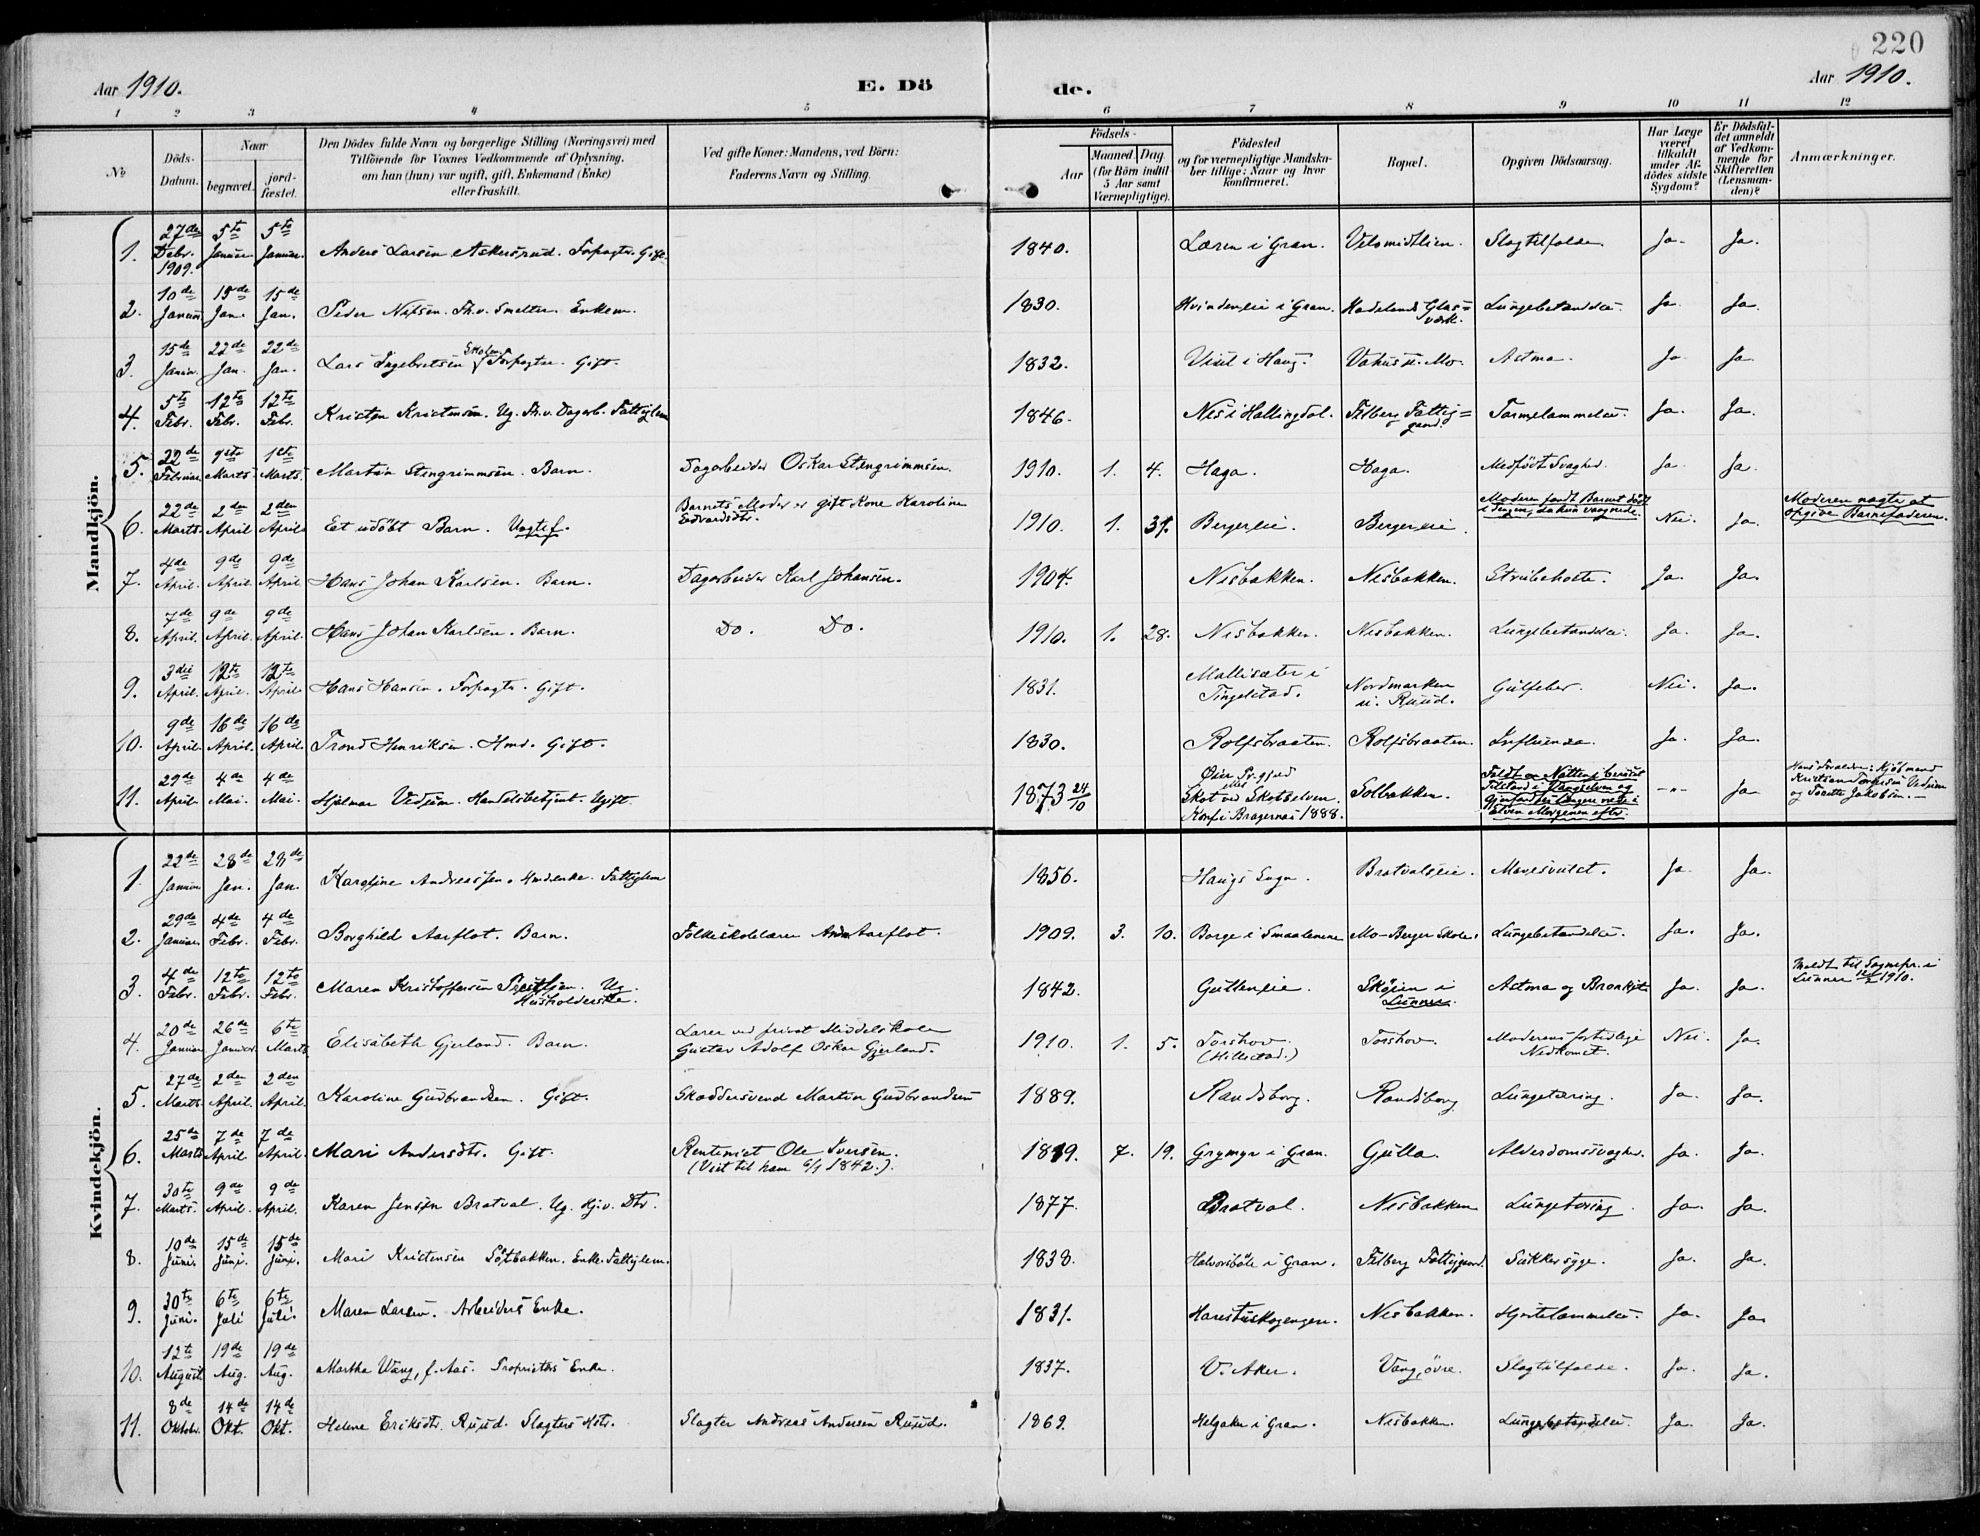 220
Aar 1910.
E. Dö
de.
Aar 1910.
1 2 3 4 5 6 7 8 9 10 11 12
No
Döds-Datum.
Naar
begravet.
jordfæstet.
Den Dödes fulde Navn og borgerlige Stilling (Næringsvei) med
Tilföiende for Voxnes Vedkommende af Oplysning,
om han (hun) var ugift, gift, Enkemand (Enke)
eller fraskilt.
Ved gifte Koner: Mandens, ved Börn:
Faderens Navn og Stilling.
Födsels-
Aar
Maaned Dag
(for Börn indtil
5 Aar samt
Værnepligtige).
Födested
og for værnepligtige Mandskaber
tillige: Naar og hvor
konfirmeret.
Bopæl.
Opgiven Dödsaarsag.
Har Læge
været
tilkaldt
under Afdödes
sidste
Sygdom?
Er Dödsfaldet
anmeldt
af Vedkommende
for
Skifteretten
(Lensmanden)?
Anmærkninger.
Mandkjön.
1. 27de Debr. 1909. 5te Januar. 5te Januar. Anders Larsen Askersrud. Forpagter. Gift. 1840. Læren i Gran. Velsmidtlien. Slagtilfælde. Ja. Ja.
2. 10de Januar 15de Jan. 15de Jan. Peder Nilsen. Fh.v. Smelter. Enkem. 1830. Hvindeneie i Gran. Hadelands Glasværk. Lungebetændelse. Ja. Ja.
3. 15de Januar 22de Jan. 22de Jan. Lars Ingebretsen Forpagter. Gift. 1832. i Haug. u. Mo. Astma. Ja Ja
4. 5te Febr. 12te Febr. 12te Febr. Kristen Kristensen. Ug. Fh.v. Dagarb. Fattiglem 1846. Nes i Hallingdal. Felberg Fattiggaard. Tarmelammelse. Ja. Ja.
5. 22de Februar. 1ste Marts 1ste Marts. Martin Stengrimmsen. Barn. Dagarbeider Oskar Stengrimmsen. 1910. 1. 4. Haga. Haga. Medfödt Svaghed. Ja. Ja.
6. 22de Marts. 2de April 2den April. Et udöbt Barn. Uægtef. Barnets Moder er gift Kone Karoline Edvardsdtr. 1910. 1. 31. Bergereie. Bergereie. Moderen fandt Barnet dödt i Sengen, da hun vaagnede. Nei. Ja. Moderen nægter at opgive Barnefaderen.
7. 4de April. 9de April. 9de April Hans Johan Karlsen. Barn. Dagarbeider Karl Johansen. 1904. Nesbakken. Nesbakken. Strubehoste. Ja. Ja.
8. 7de April. 9de April. 9de April. Hans Johan Karlsen. Barn. Do. Do. 1910. 1. 28. Nesbakken. Nesbakken. Lungebetændelse. Ja. Ja.
9. 3die April. 12te April. 12te April Hans Hansen. Forpagter. Gift. 1831. Mallisæter i Tingelstad. Nordmarken u. Ruud. Gulfeber. Nei. Ja.
10. 9de April. 16de April. 16de April. Trond Henriksen. Hmd. Gift. 1830. Rolfsbraaten. Rolfsbraaten. Influensa. Ja. Ja.
11. 29de April. 4de Mai. 4de Mai. Hjalmar Vedum. Handelsbetjent. Ugift. 1873 24/10 Öier Pr.gjeld eller Skot ved Skotselven. Konf. i Bragernes 1888. Solbakken. Faldt Natten i beruset Tilstand i og Gjenfandtes længere nede i Elven Morgenen efter. -"- Ja Hans Forældre: Kjöbmand Kristian Vedum og Jakobsen.
Kvindekjön.
1. 22de Januar 28de Jan. 28de Jan. Karoline Andreassen. Hmdenke. Fattiglem 1856. Haugs Sogn. Bratvalseie. Mavesvulst. Ja. Ja.
2. 29de Januar. 4de Febr. 4de Febr. Borghild Aarflot. Barn. Folkeskolelærer Aarflot. 1909. 3. 10. Borge i Smaalenene Mo-Berger Skole. Lungebetændelse. Ja. Ja.
3. 4de Febr. 12te Febr. 12te Febr. Maren Kristoffersen. Ug. Husholderske. 1842. Gulleneie. Sköien i Lunner. Astma og Bronkit Ja. Ja. Meldt til Sognepr. i Lunner 12/2 1910.
4. 20de Januar 26de Januar. 6te Marts Elisabeth Gjerland. Barn. Lærer ved privat Middelskole Gustav Adolf Oskar Gjerland. 1910. 1. 5. Torshov. (Hillestad.) Torshov. Moderens fortidlige Nedkomst. Nei. Ja.
5. 27de Marts. 2den April. 2den April. Karoline Gudbrandsen. Gift. Skræddersvend Martin Gudbrandsen 1889. Randsborg. Randsborg Lungetæring. Ja. Ja.
6. 25de Marts 7de April 7de April. Mari Andersdtr. Gift. Rentenist Ole Iversen. (Viet til ham 6/1 1842.). 1819. 7. 19. Grymyr i Gran. Gulla. Alderdomssvaghed. Ja. Ja.
7. 30te Marts. 9de April. 9de April. Karen Jensen Bratval. Ug. Gjv. Dtr. 1877. Bratval. Nesbakken Lungetæring. Ja. Ja.
8. 10de Juni. 15de Juni. 15de Juni. Mari Kristensen Götbakken. Enke. Fattiglem. 1838. Halvorsböle i Gran. Felberg Fattiggaard. Sukkersyge. Ja. Ja.
9. 30te Juni. 6te Juli 6te Juli. Maren Larsen. Arbeiders Enke. 1831. Harestuskogengen. Nesbakken. Hjertelammelse. Ja. Ja.
10. 12te August 19de Aug. 19de Aug. Marthe Wang, f. Aas. Proprietærs Enke. 1837. V. Aker. Vang, övre. Slagtilfælde. Ja. Ja.
11. 8de Oktober. 14de Okt. 14de Okt. Helene Eriksdtr. Ruud. Slagters Hstr. Slagter Andreas Andersen Ruud. 1869. Helgaker i Gran. Nesbakken. Lungebetændelse. Ja. Ja.